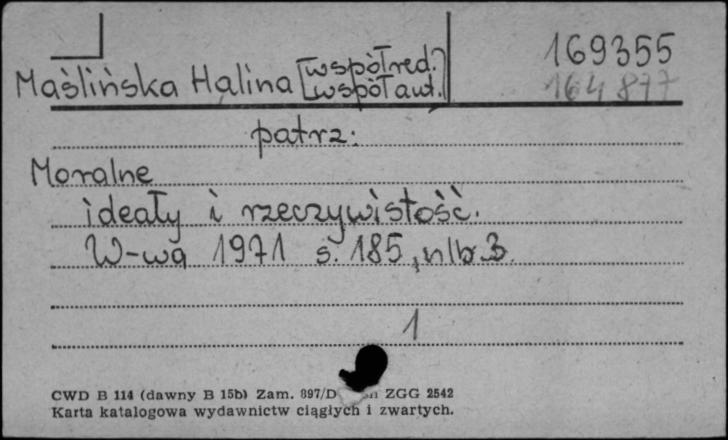 169355
Maślińska Halina [współred. współaut.]
164877
patrz:
Moralne
ideały i rzeczywistość.
W-wa 1971 s. 185, nlb. 3.
1
CWD B 114 (dawny B 15b) Zam. 897/D ZGG 2542
Karta katalogowa wydawnictw ciągłych i zwartych.